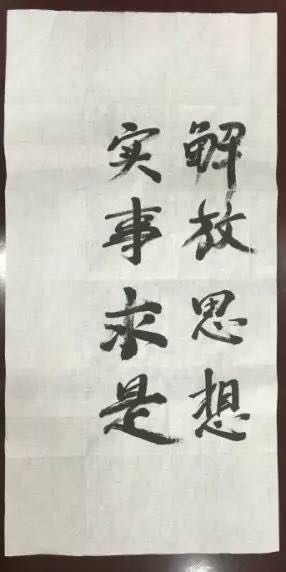 解放思想
实事求是